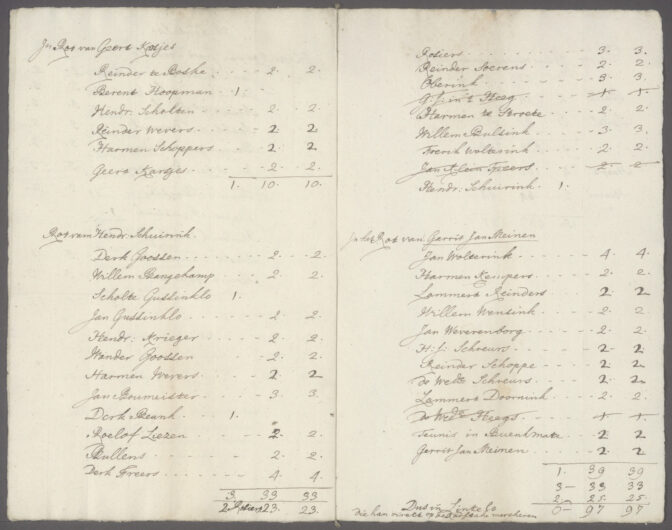 In Rot van Geert Kotjes
Reinder te Boske - - - 2 - 2.
Berent Hoopman 1.
Hendr: Scholten - - - 2 - 2.
Reinder Wevers - - - 2. 2
Harmen Schoppers - - 2. 2
Geert Kaatjes - - - 2 - 2.
1. 10. 10.
Rot van Hendr Schuirink.
Derk Goossen - - - 2 - 2.
Willem Bangekamp - - 2. 2.
Scholte Gussinklo 1.
Jan Gussinklo - - - 2 - 2.
Hendr: Krieger - - - 2. 2.
Wander Goossen - - - 2. 2.
Harmen Wevers - - - 2. 2
Jan Boumeister - - - 3. 3.
Derk Blank - - 1.
Roelof Liezen - - - 2. 2.
Bullens - - - 2. 2.
Derk Freers - - - 4. 4.
3. 33 33
2 Rotiers 23. 23.
Rotiers - - - 3. 3.
Reinder Soerens - - 2. 2
Oberink - - - 3. 3.
Harmen te Stroete - - 2. 2
Willem Bulsink - - 3. 3.
Freerk Wolterink - - 2. 2
Jan Klein Freers - - 2 - 2
Hendr: Schuirink 1.
In het Rot van Garrit Jan Meinen
Jan Wolterink - - - 4. 4.
Harmen Keupers - - 2. 2.
Lammert Reinders - - 2. 2
Willem Wensink - - 2. 2
Jan Weverenborg - - 2. 2.
H: j: Schreurs - - - 2. 2
Reinder Schoppe - - 2. 2
De Wedᵉ Schreurs - - 2. 2
Lammert Doornink - - 2. 2.
De Wedᵉ Heegs - - 1 - 1
Teunis in Buenkmate - - 2 2
Garrit Jan Meinen - - 2 2
1. 39 39
3 - 33 33
2 - 25. 25.
Dus in Lintelo 0 - 97 97